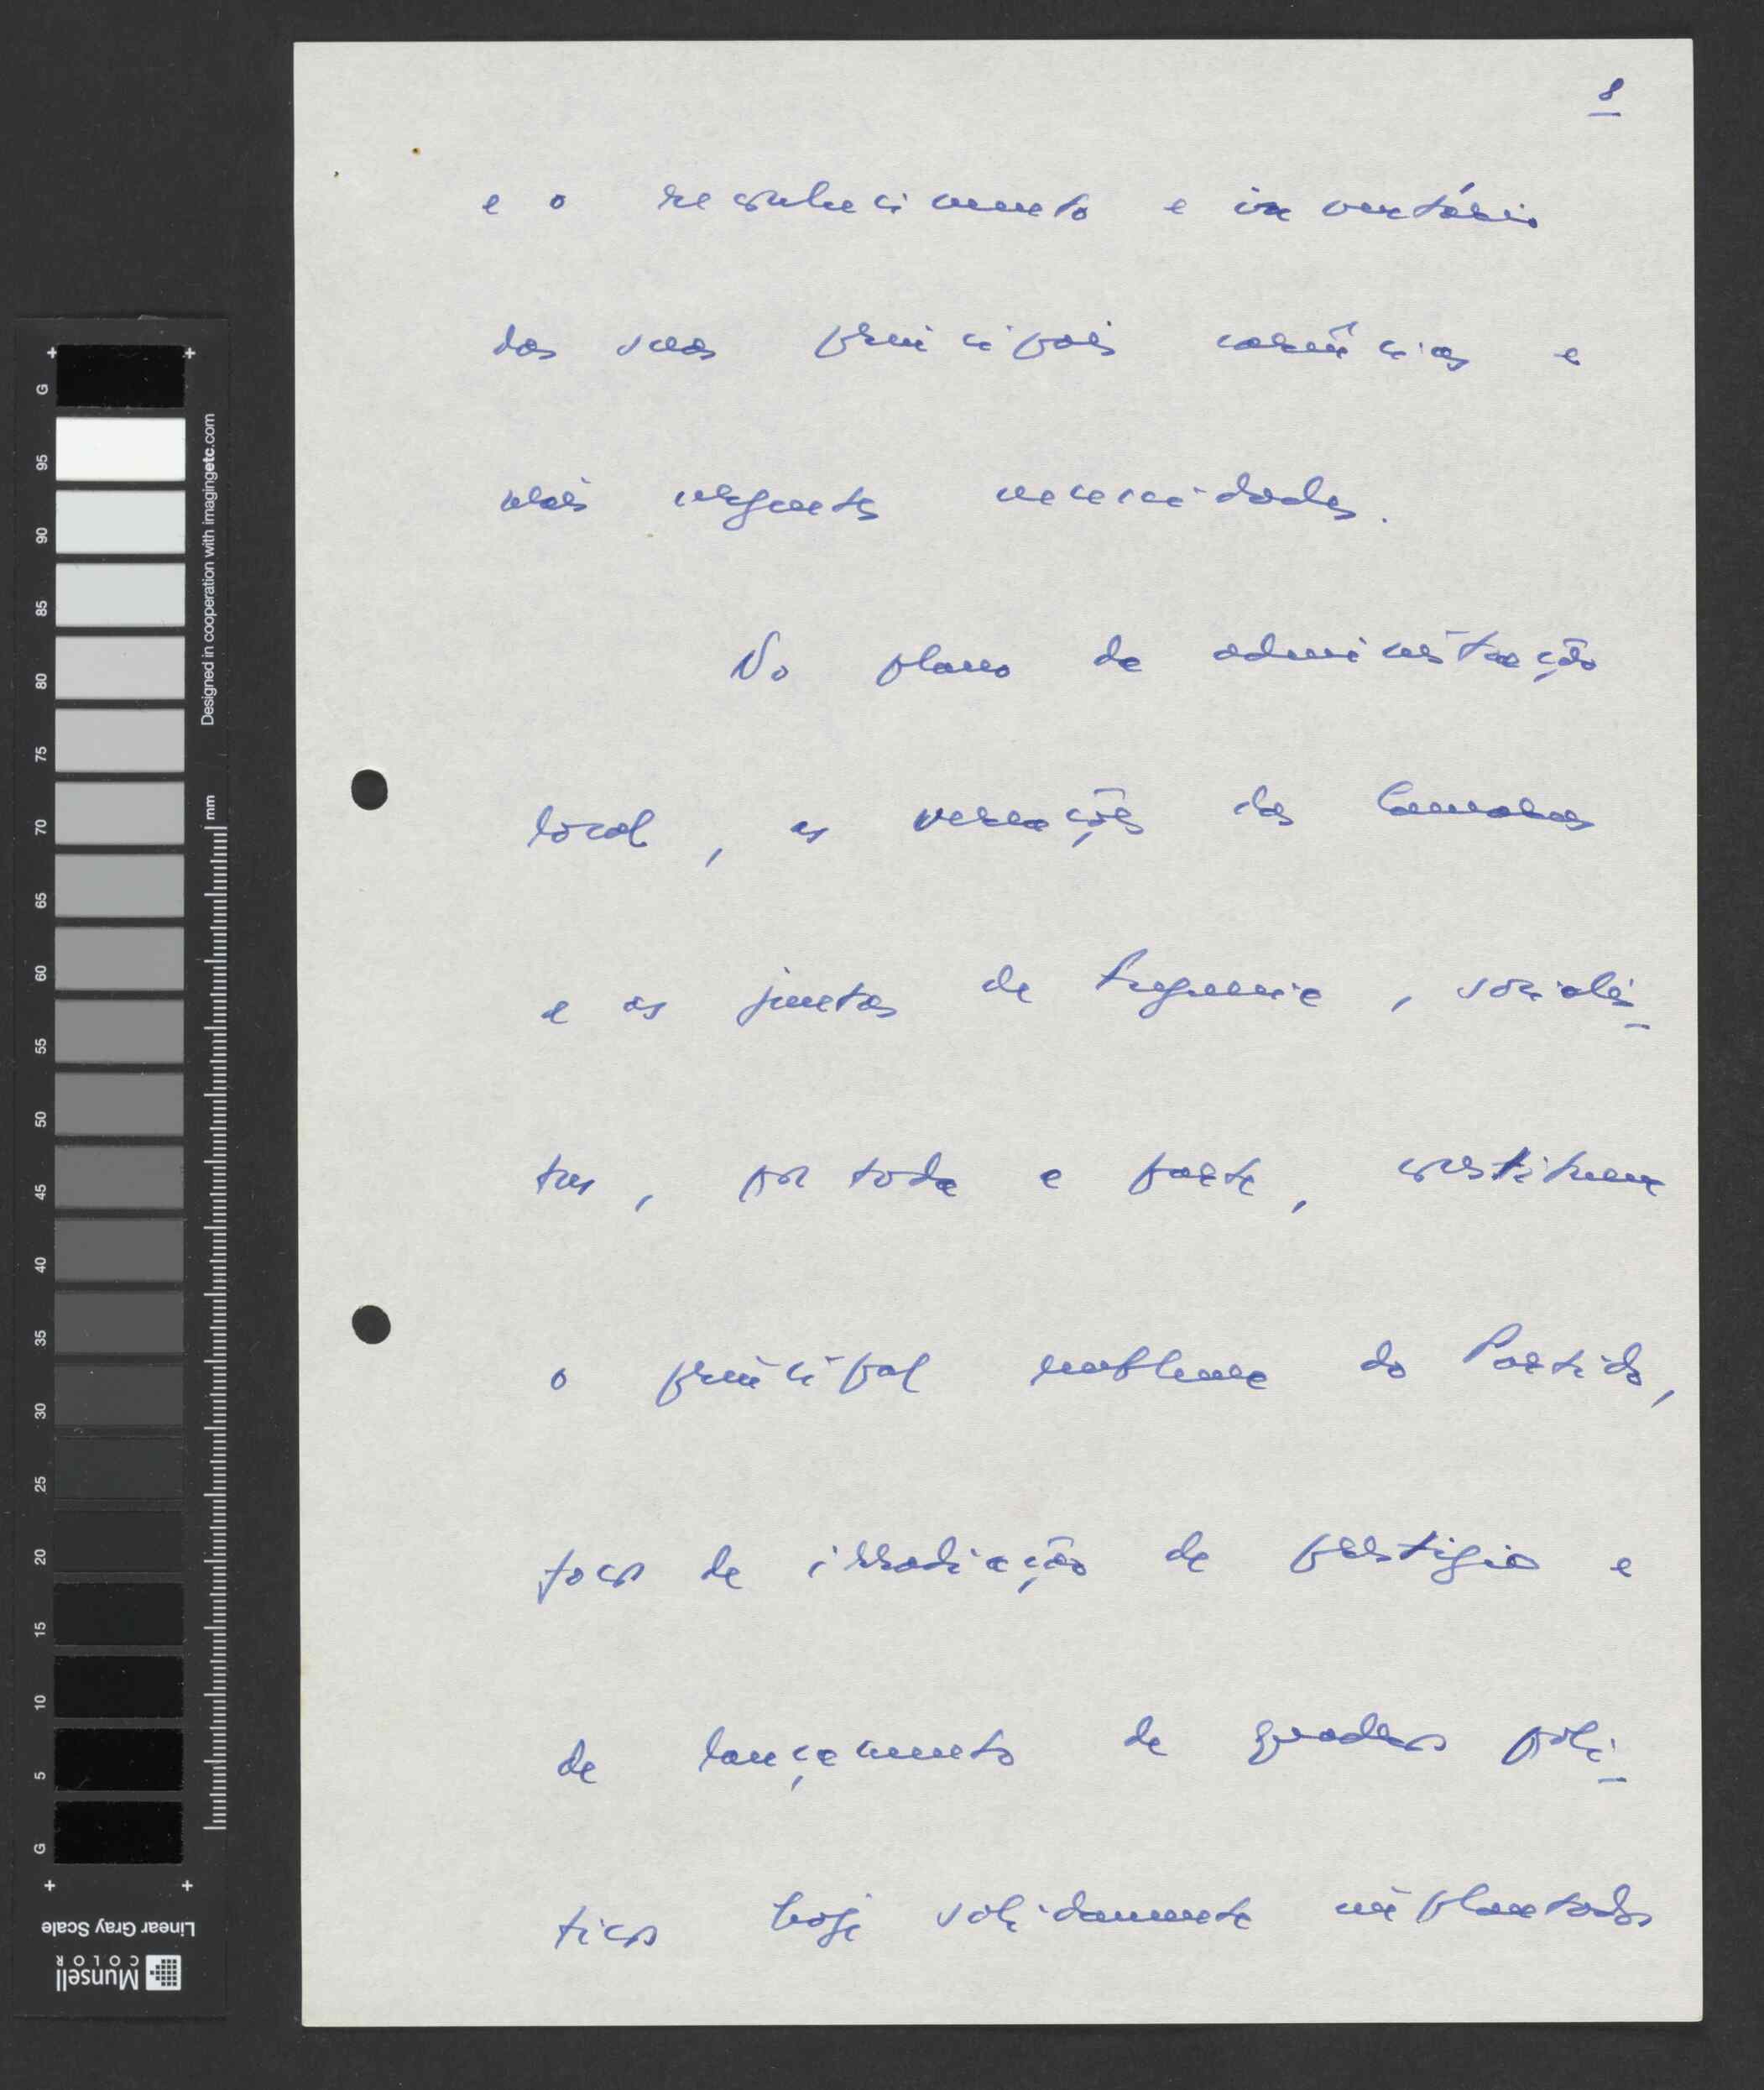 8
e o reconhecimento e inventário
das suas principais carências e
mais urgentes necessidades.
No plano da administração
local, as vereações das Camaras
e as juntas de freguesia, socialis-
tas, por toda a parte, constituem
o principal emblema do Partido,
focos de irradiação de prestigio e
de lançamento de quadros polí-
ticos hoje solidamente implantados
G
95
90
85
80
75
70
65
60
55
50
45
40
35
30
25
20
15
10
5
G
mm
Designed in cooperation with imagingetc.com
Linear Gray Scale
Munsell
COLOR